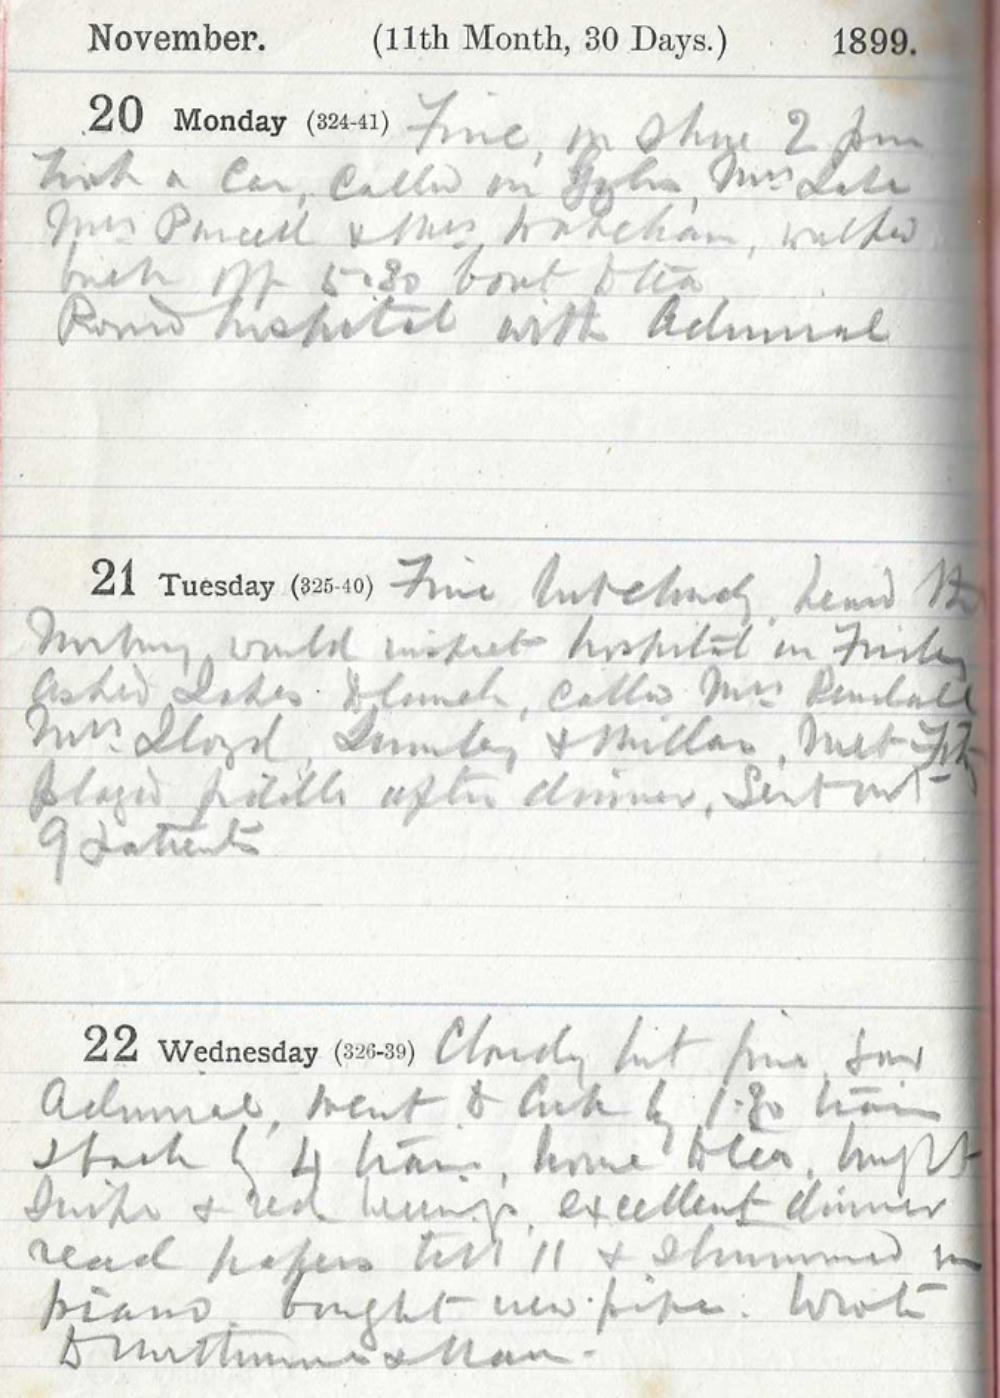 November. (11th Month, 30 Days.) 1899.
20 Monday (324-41) Fine, on shore 2 pm
took a car, called on Mrs Lake
Mrs Purcell & Mrs walked
back off 5.30 boat to tea
Round hospital with Admiral
21 Tuesday (325-40) Fine but cloudy, heard
Norbury would inspect hospital on Friday
asked Lakes to lunch, called Mrs Kendall
Mrs Lloyd, Lumley & Millar, Met
played fiddle after dinner, Sent out
9 patients
22 Wednesday (326-39) Cloudy but fine, saw
Admiral, went to Cork by 1.30 train
& back by 4 train, home to tea, bought
Snipe & red herrings, excellent dinner
read papers till 11 & strummed on
piano. bought new pipe. Wrote
to